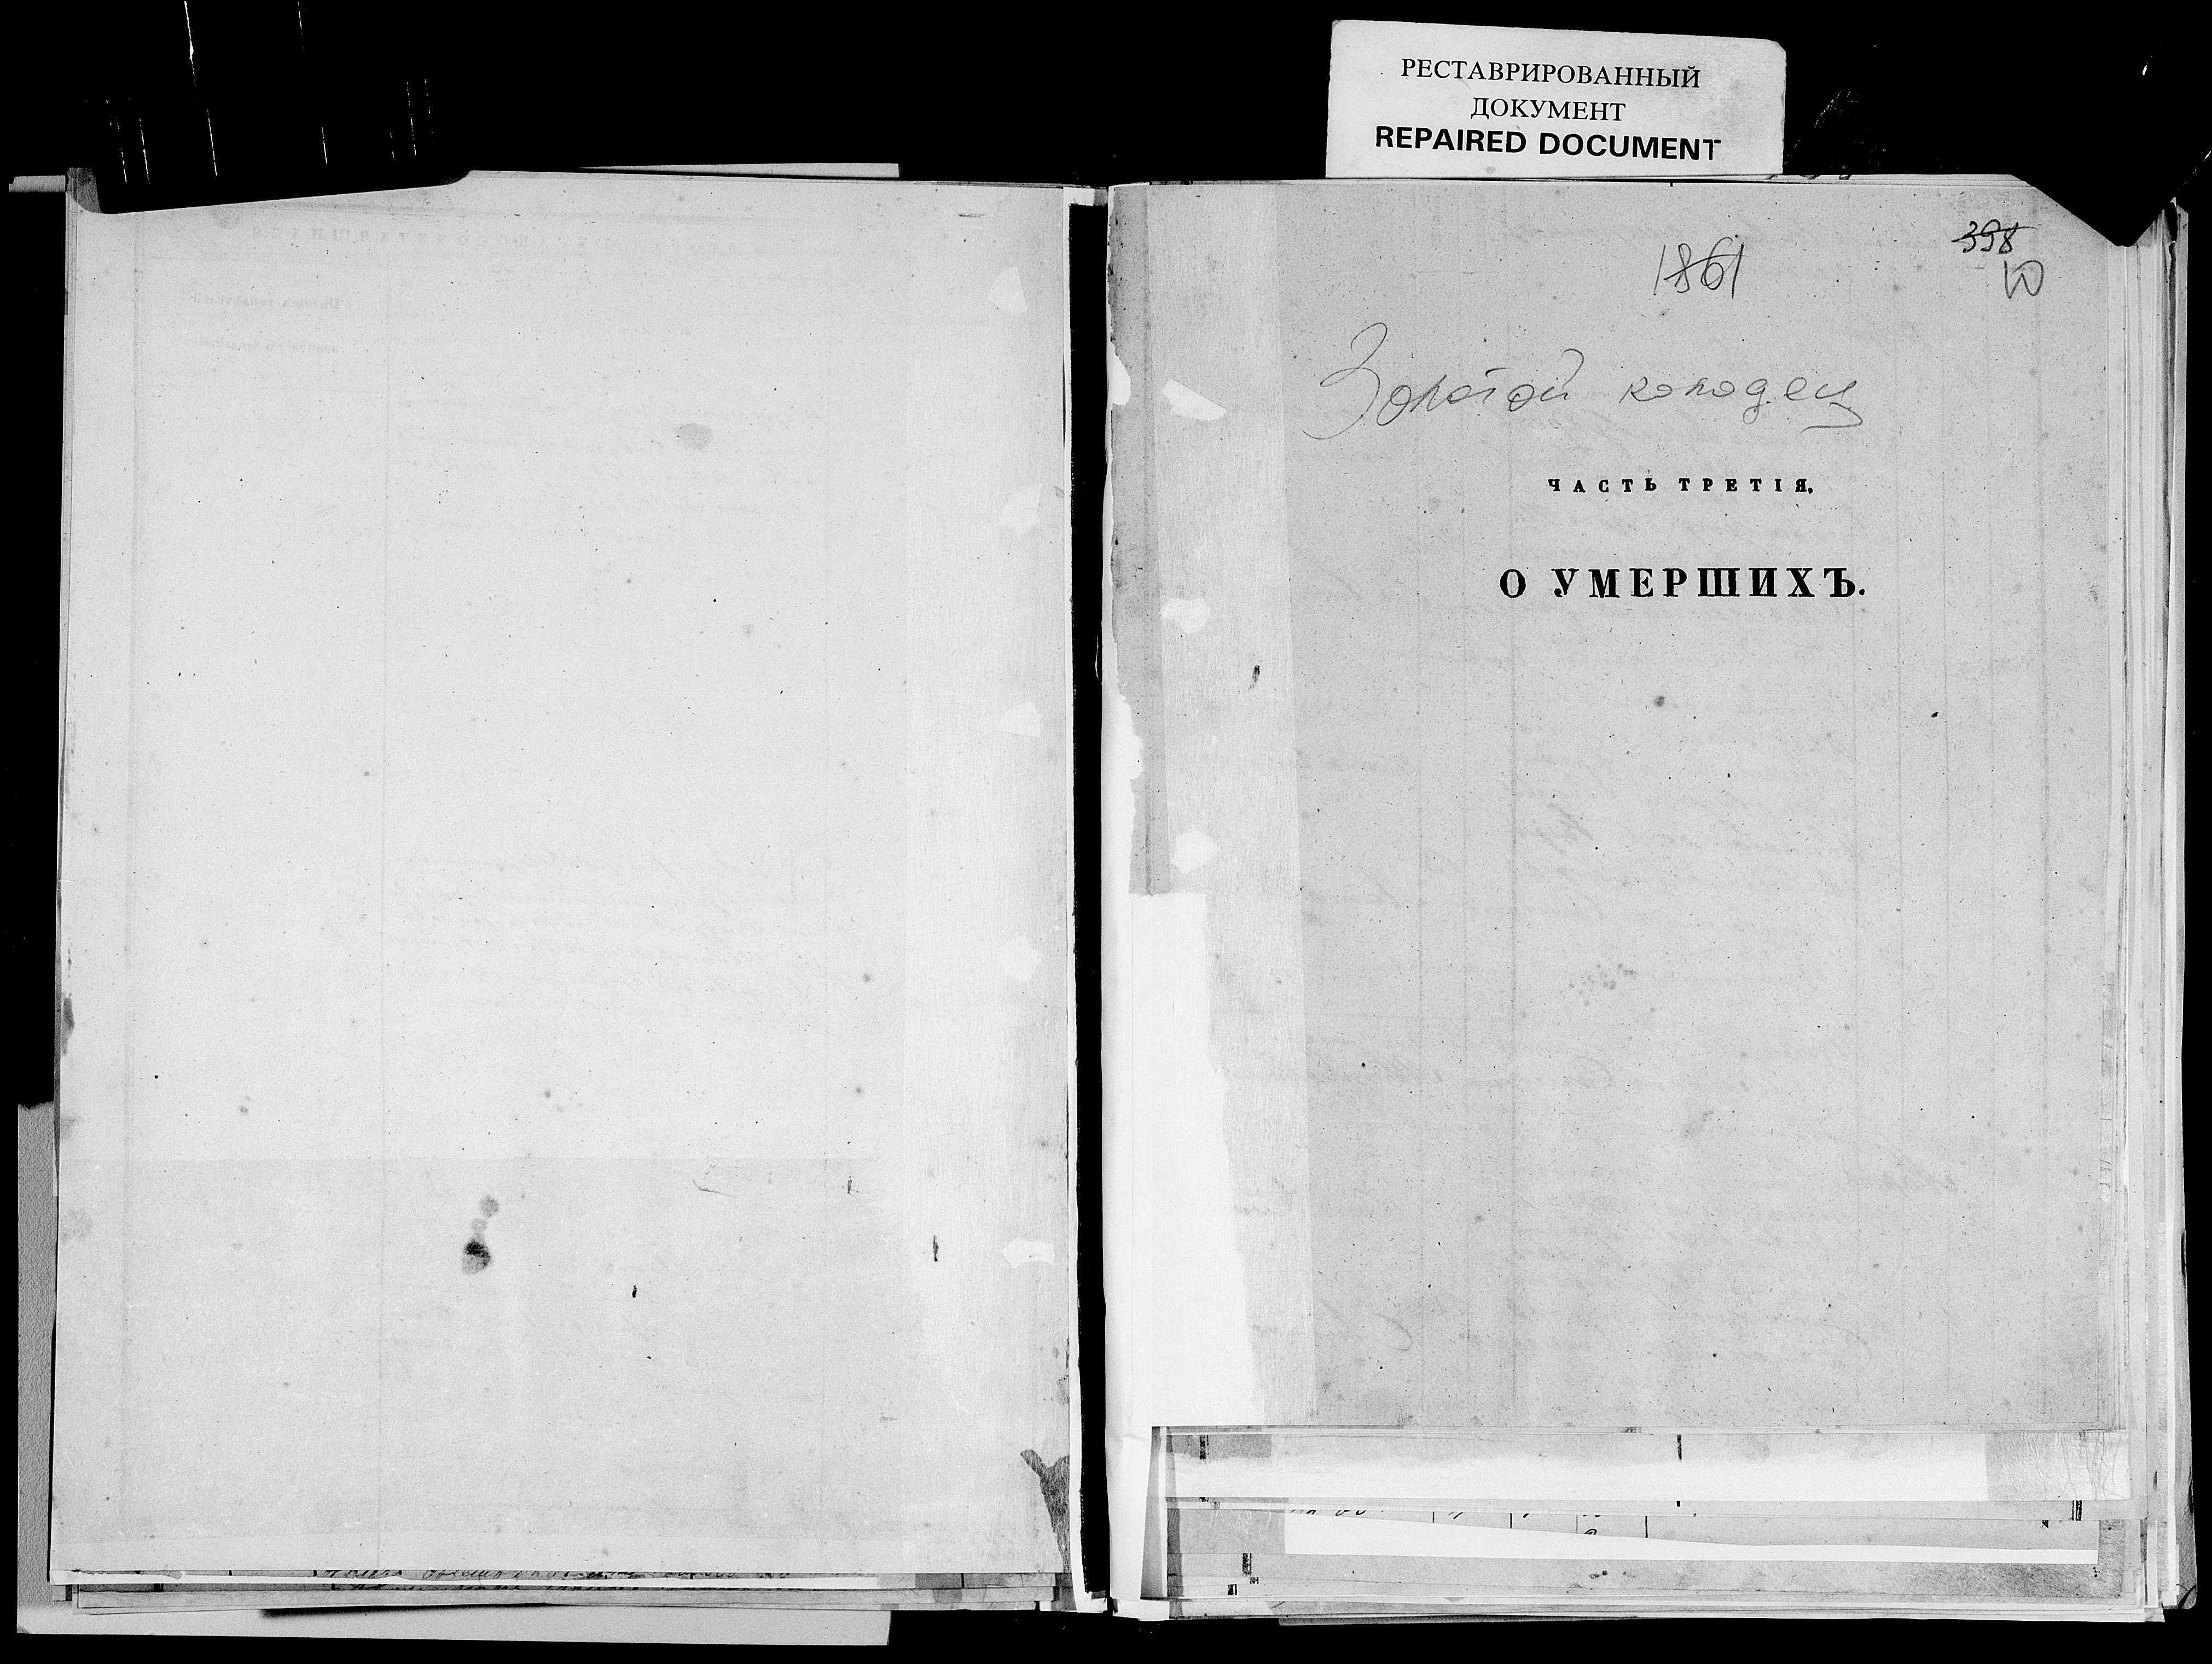 РЕСТАВРИРОВАННЫЙ
ДОКУМЕНТ
REPAIRED DOCUMENT
398
1861
Золотой колодец
ЧАСТЬ ТРЕТІЯ,
О УМЕРШИХЪ.